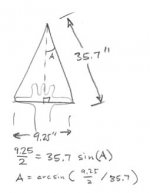 A
35.7"
9.25"
9.25/2 = 35.7 sin(A)
A = arcsin( 9.25/2 / 35.7)